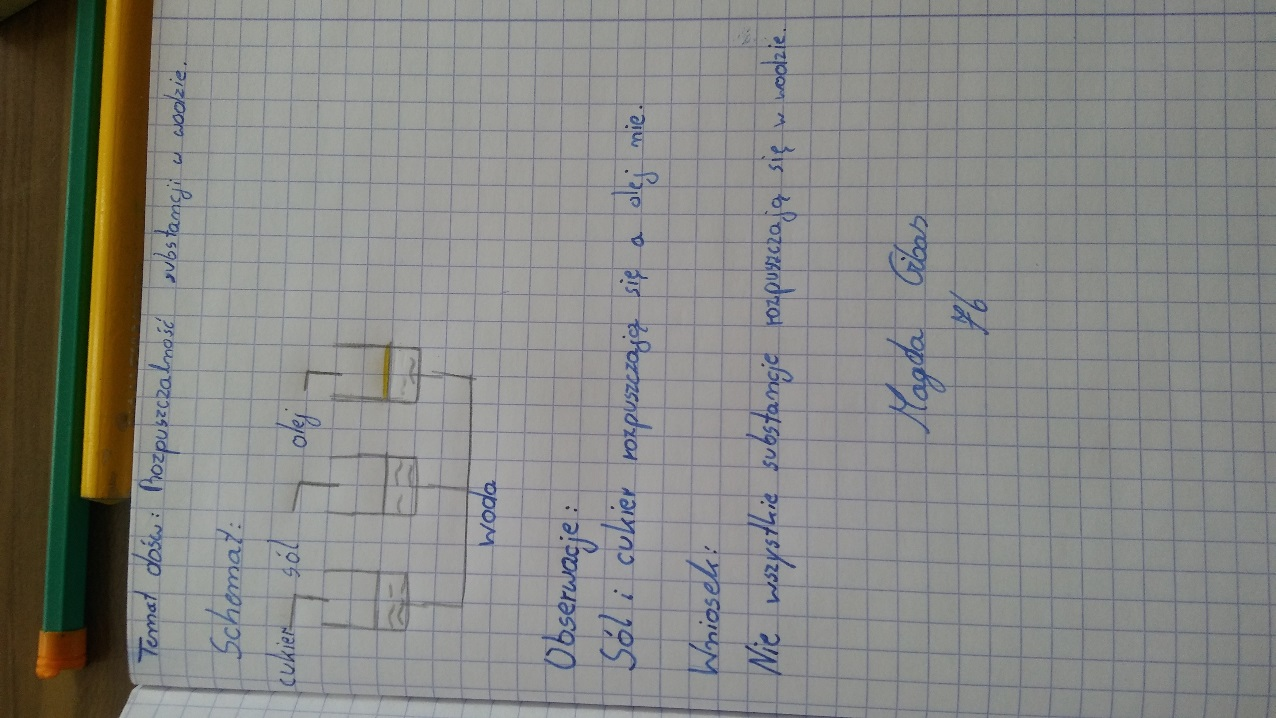 Temat dośw: Rozpuszczalność substancji w wodzie.
Schemat:
cukier sól olej
woda
Obserwacje:
Sól i cukier rozpuszczają się a olej nie.
Wniosek:
Nie wszystkie substancje rozpuszczają się w wodzie.
Magda Gibas
7b